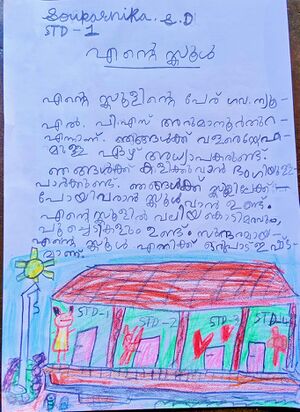 Souparnika. S. D
STD - 1
എന്റെ സ്കൂൾ
എന്റെ സ്കൂളിന്റെ പേര് ഗവ. ന്യൂ
എൽ. പി. എസ്
എന്നാണ്. ഞങ്ങൾക്ക് വളരെ സ്നേഹ-
മുള്ള ഏഴ് അധ്യാപകരുണ്ട്.
ഞങ്ങൾക്ക് കളിക്കുവാൻ ഭംഗിയുള്ള
പാർക്കുണ്ട്. ഞങ്ങൾക്ക് സ്കൂളിലേക്ക്
പോയിവരാൻ സ്കൂൾ വാൻ ഉണ്ട്.
എന്റെ സ്കൂളിൽ വലിയ കൊടിമരവും,
പൂച്ചെടികളും ഉണ്ട്. സുന്ദരമായ
എന്റെ സ്കൂൾ എനിക്ക് ഒരുപാട് ഇഷ്ട-
മാണ്.
STD-1 STD-2 STD-3 STD-4